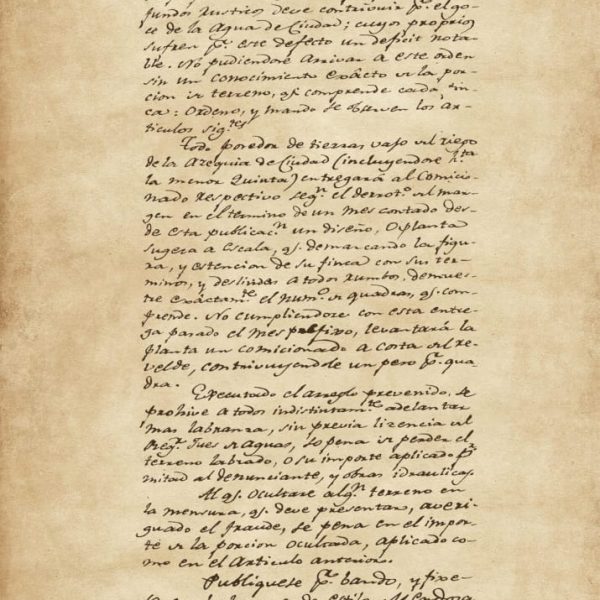 fundos rusticos deve contribuir p.r el go-
ce de la Agua de Ciudad; cuyos proprios
sufren p.r este defecto un deficit nota-
ble. No pudiendose Arrivar a este orden
sin un conocimiento exácto de la por-
cion de terreno, q.e comprende cada fin-
ca: Ordeno, y mando se observen los ar-
ticulos sig.tes
Todo Poseedor de tierras vajo del riego
de la Azequia de Ciudad (incluyendose h.ta
la menor Quinta) entregará al Comicio-
nado respectivo seg.n el derrot.o del mar-
gen en el termino de un mes contado des-
de esta publicac.n un diseño, O planta
sugeta a escala, q.e demarcando la figu-
ra, y estencion de su finca con sus ter-
minos, y deslindes a todos rumbos, demues-
tre exáctam.te el num.o de quadras, q.e com-
prende. No cumpliendose con esta entre-
ga pasado el mes prefixo, levantará la
planta un comicionado a costa del re-
velde, contrivuyendole un peso p.r qua-
dra.
Executado el arreglo prevenido, se
prohive a todos indistintam.te adelantar
mas labranza, sin previa lizencia del
Reg.r Jues de aguas, so pena de perder el
terreno labrado, O su importe aplicado p.r
mitad al denunciante, y obras idraulicas.
Al q.e ocultare alg.n terreno en
la mensura, q.e deve presentar, averi-
guado el fraude, se pena en el impor-
te de la porcion ocultada, aplicado co-
mo en el Articulo anterior.
Publiquese p.r bando, y fixe-
de estilo. Mendoza